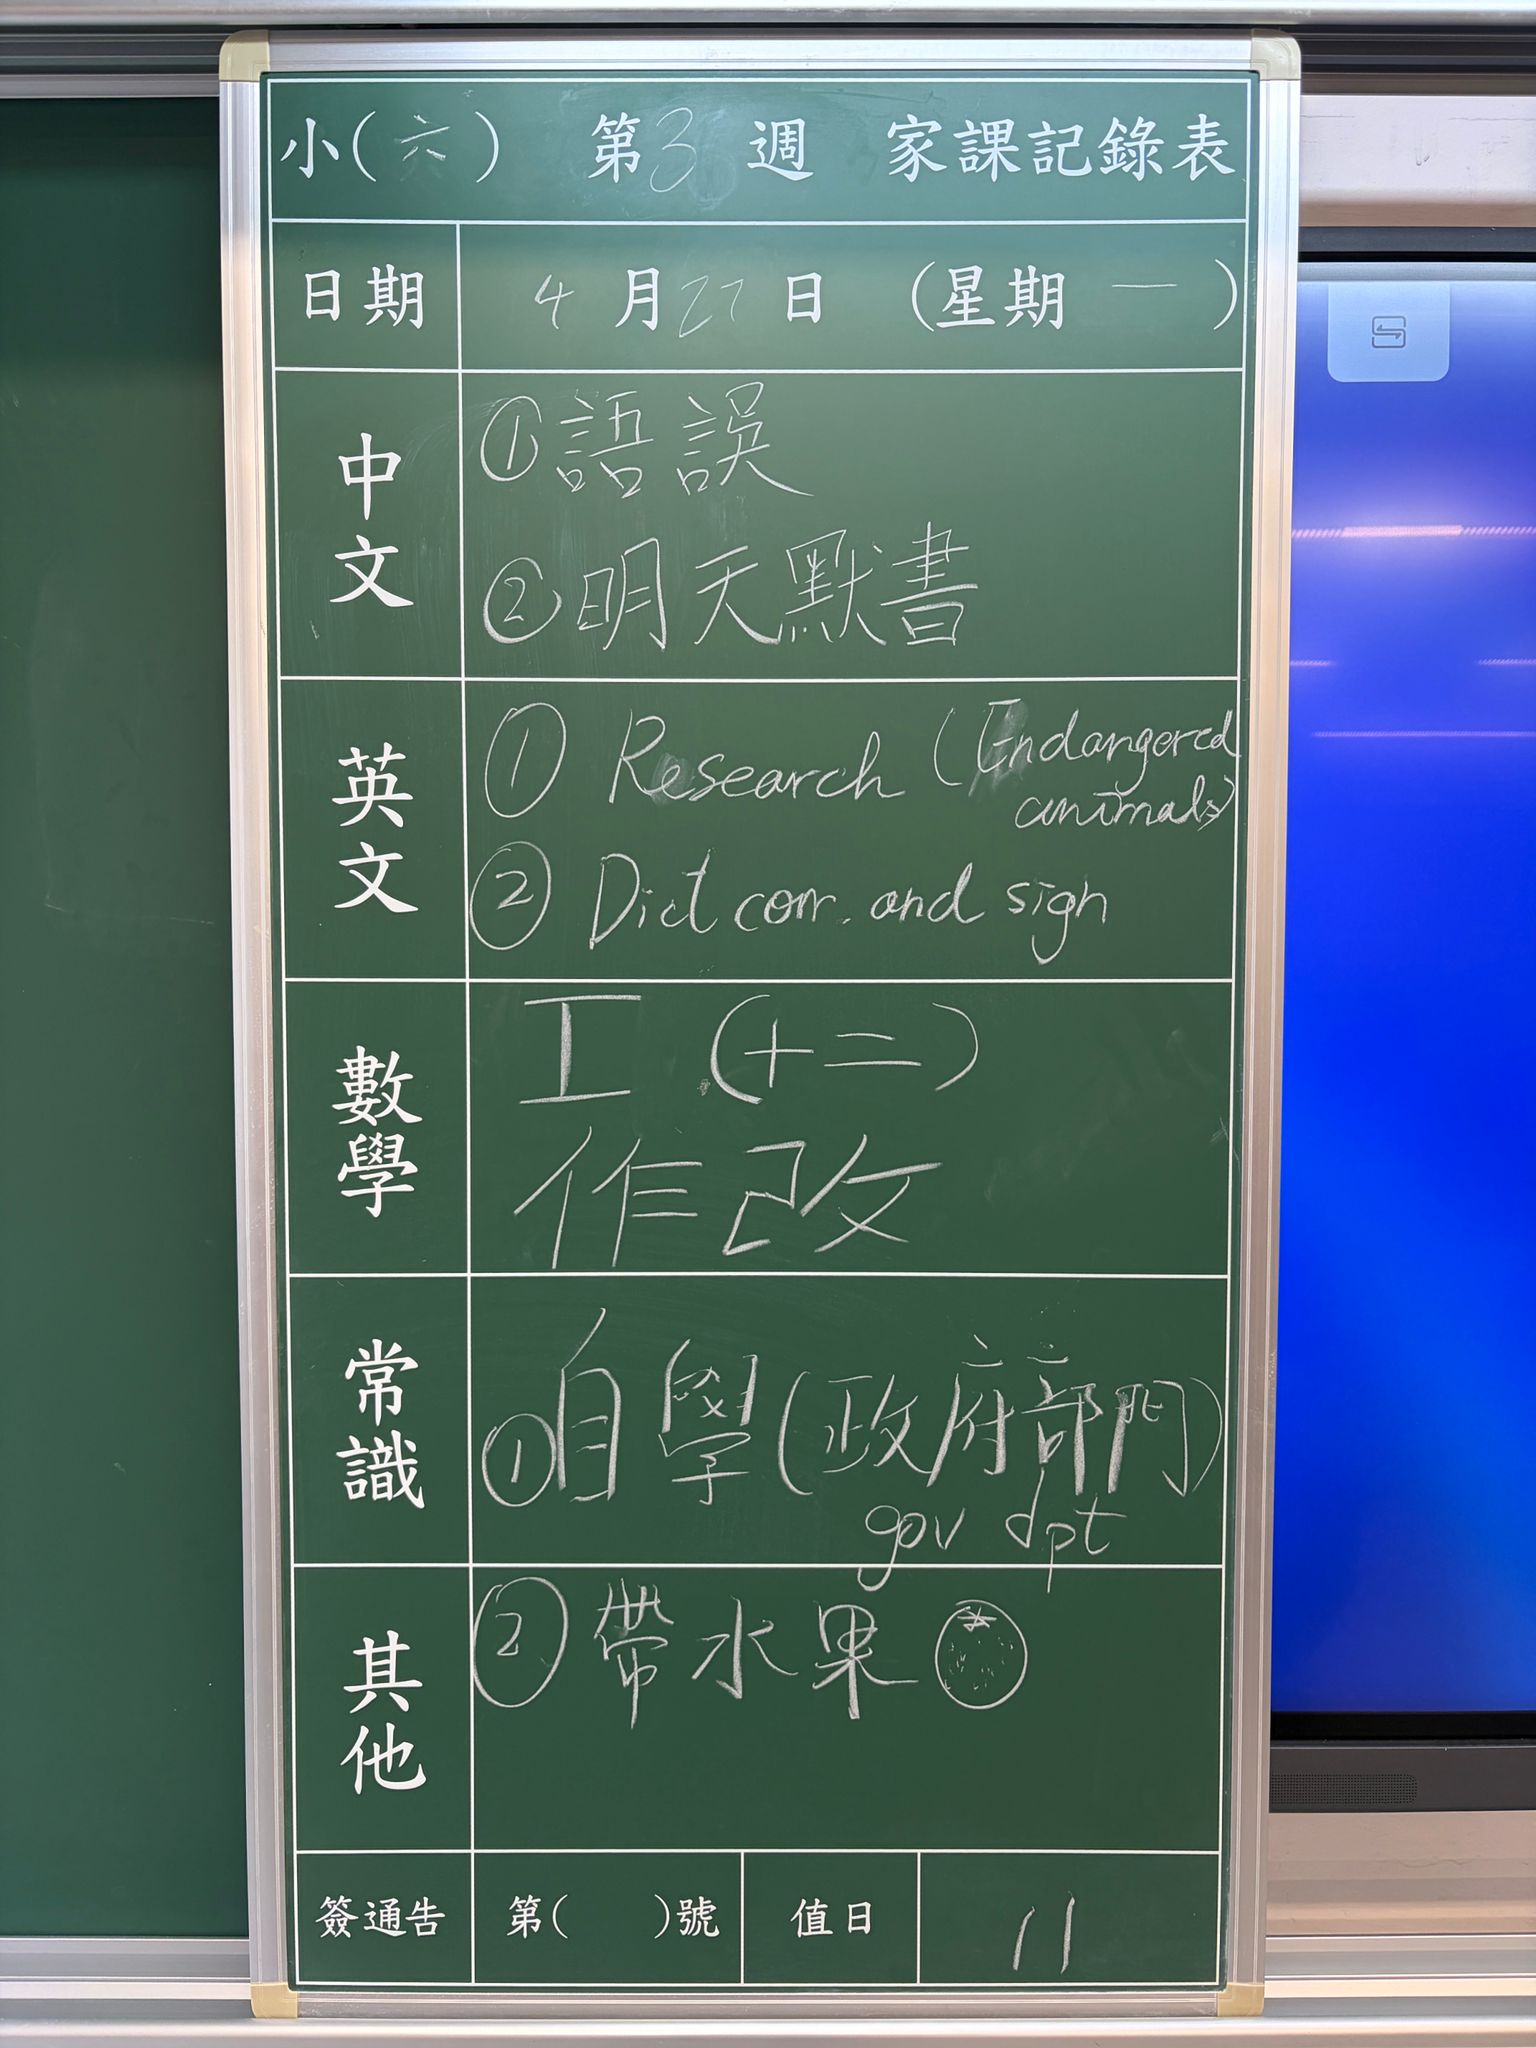 小(六) 第3週 家課記錄表
日期 4月27日 (星期一)
中文
①語誤
②明天默書
英文
① Research (Endangered
animals)
② Dict corr. and sign
數學
工 (十二)
作改
常識
①自學(政府部門)
gov dpt
其他
②帶水果
簽通告 第( )號 值日 11